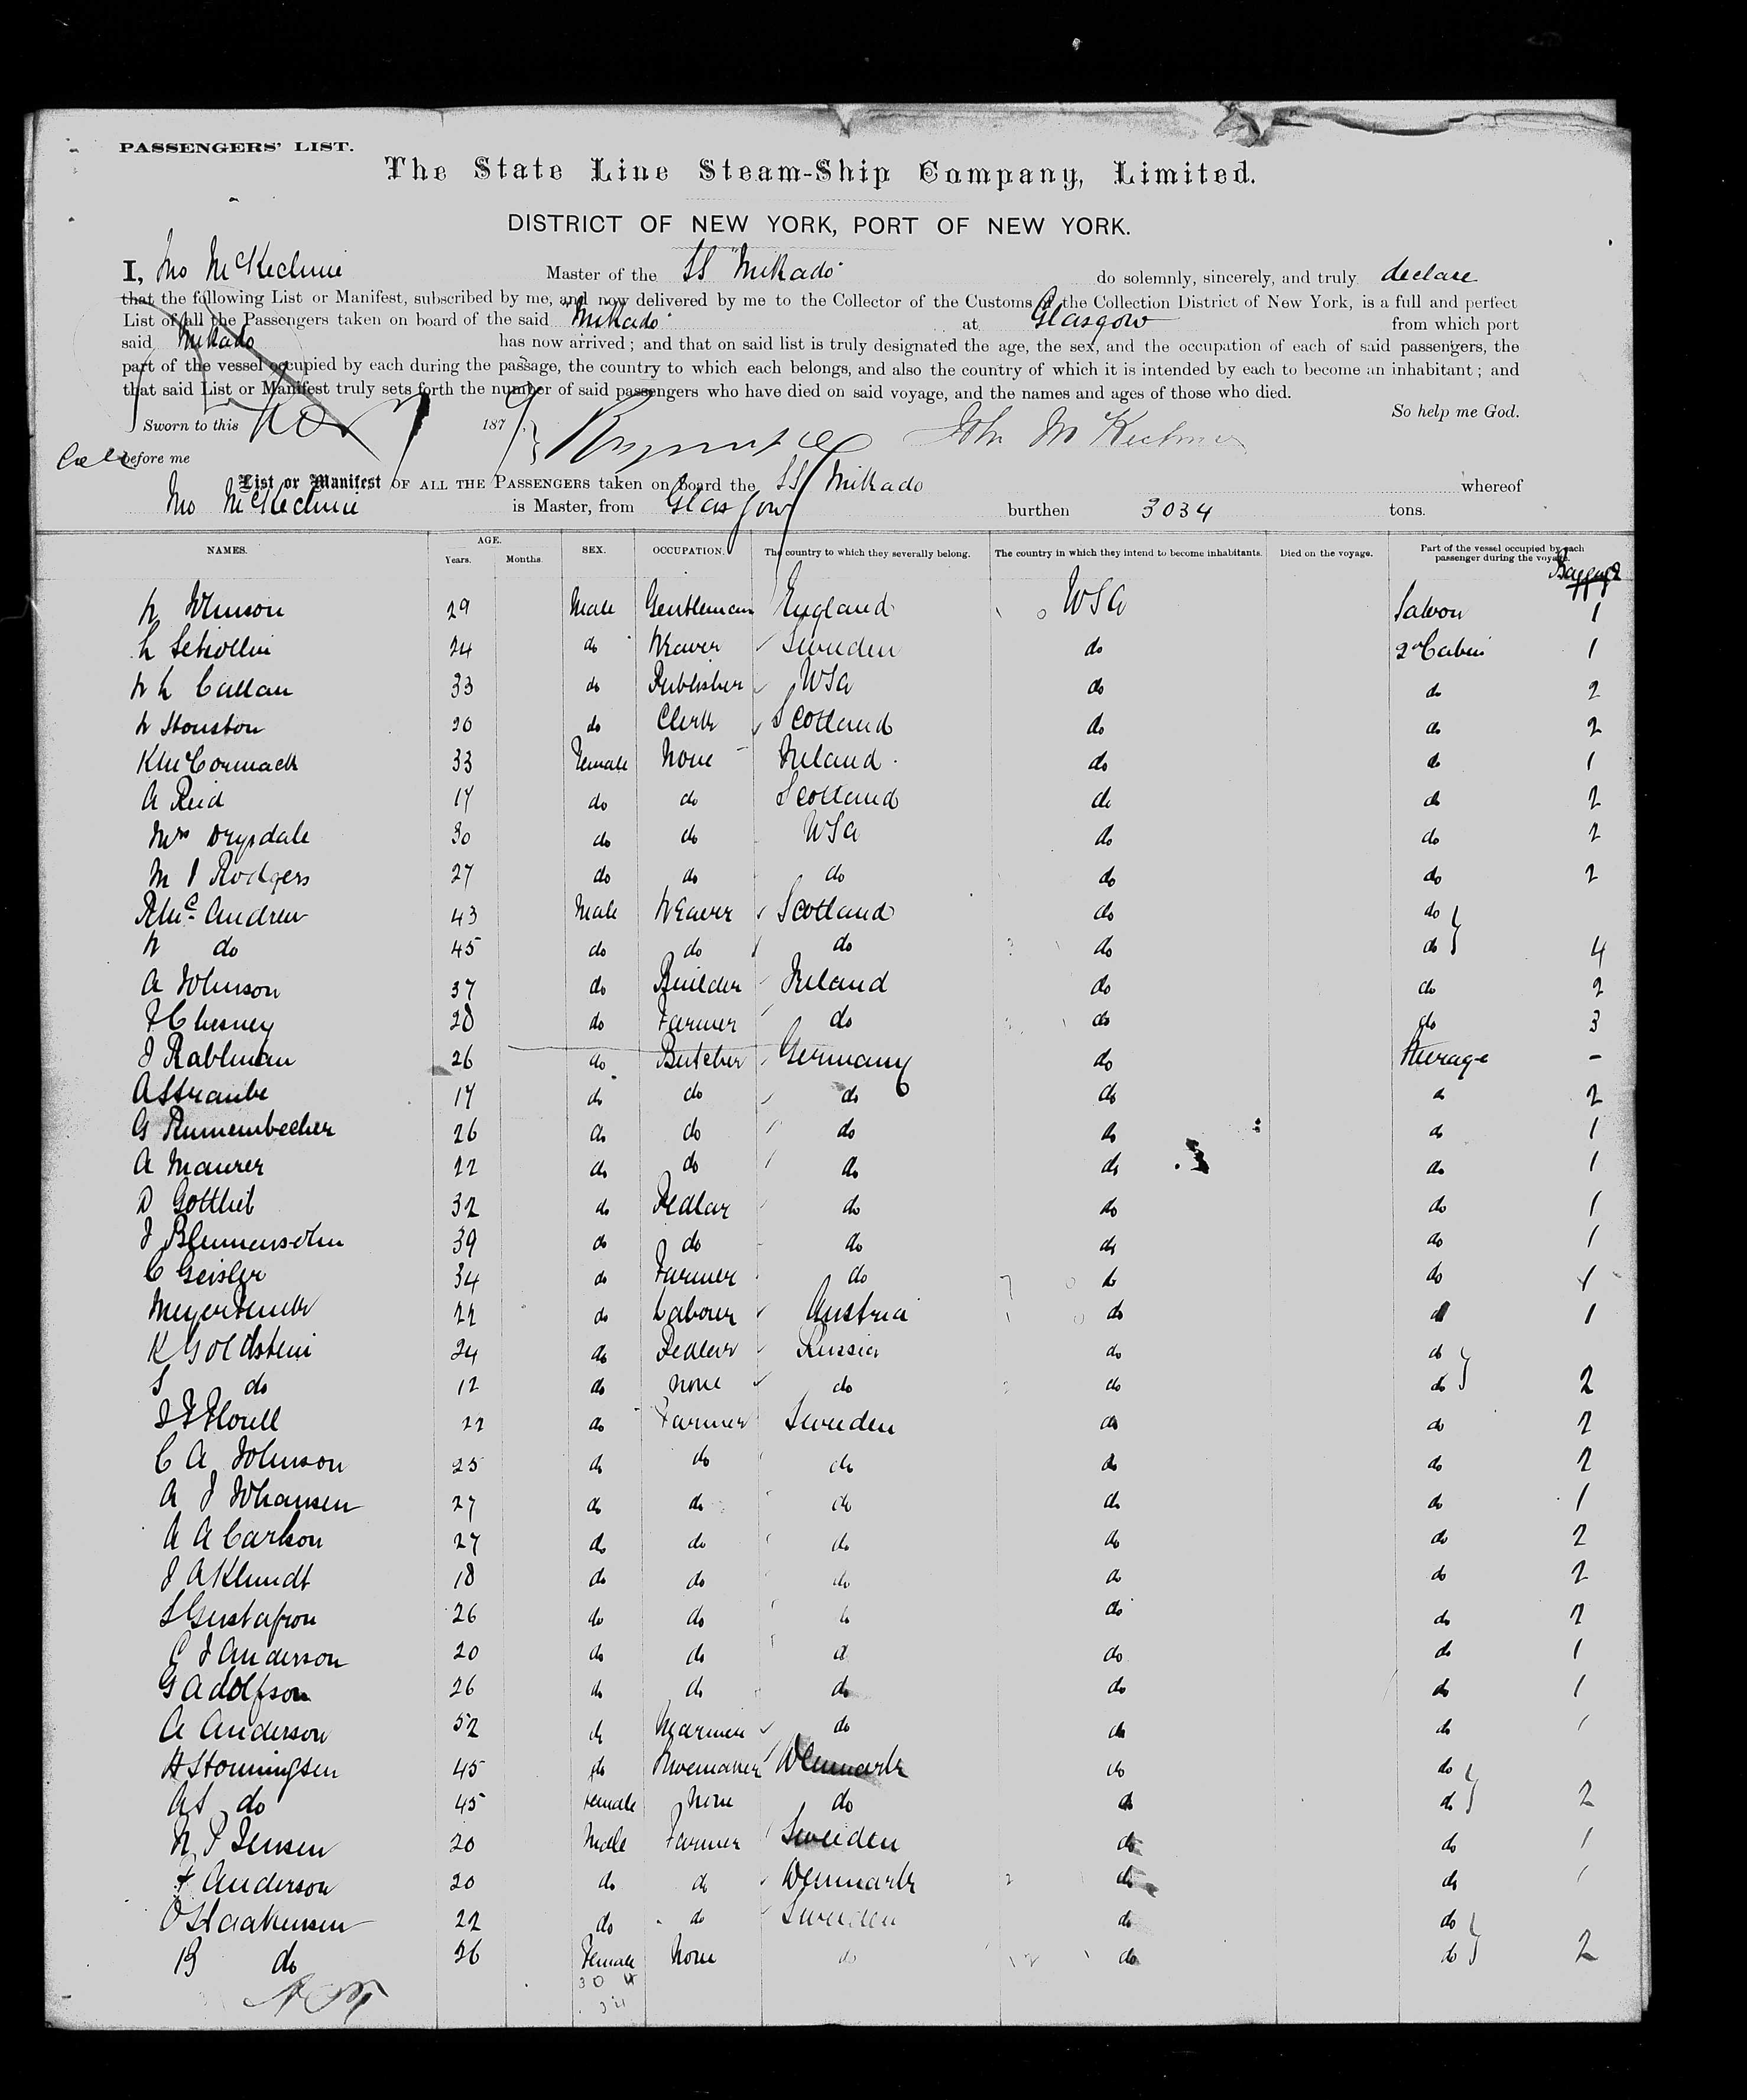 PASSENGERS' LIST.
The State Line Steam-Ship Company, Limited.
DISTRICT OF NEW YORK, PORT OF NEW YORK.
I, Jno McKechnie Master of the SS "Mikado" do solemnly, sincerely, and truly declare
that the following List or Manifest, subscribed by me, and now delivered by me to the Collector of the Customs of the Collection District of New York, is a full and perfect
List of all the Passengers taken on board of the said Mikado at Glasgow from which port
said Mikado has now arrived; and that on said list is truly designated the age, the sex, and the occupation of each of said passengers, the
part of the vessel occupied by each during the passage, the country to which each belongs, and also the country of which it is intended by each to become an inhabitant; and
that said List or Manifest truly sets forth the number of said passengers who have died on said voyage, and the names and ages of those who died.
So help me God.
Sworn to this Nov 7 1879 John McKechnie
before me
List or Manifest OF ALL THE PASSENGERS taken on Board the SS Mikado whereof
Jno McKechnie is Master, from Glasgow burthen 3034 tons.
NAMES. AGE. Years. Months. SEX. OCCUPATION. The country to which they severally belong. The country in which they intend to become inhabitants. Died on the voyage. Part of the vessel occupied by each passenger during the voyage. Baggage
W Johnson 29 Male Gentleman England USA Saloon 1
24 do Weaver Sweden do 2nd Cabin 1
W L Callan 33 do Publisher USA do do 2
W Houston 20 do Clerk Scotland do do 2
K McCormack 33 Female None Ireland do do 1
A Reid 17 do do Scotland do do 2
Mrs Drysdale 30 do do USA do do 2
M J Rodgers 27 do do do do do 2
R McAndrew 43 Male Weaver Scotland do do
W do 45 do do do do do 4
A Johnson 37 do Builder Ireland do do 2
J Chesney 28 do Farmer do do do 3
J Rablman 26 do Butcher Germany do Steerage -
A Straube 17 do do do do do 2
G Rumembecher 26 do do do do do 1
A Maurer 22 do do do do do 1
D Gottlieb 32 do Pedlar do do do 1
J Blumensohn 39 do do do do do 1
C Geisler 34 do Farmer do do do 1
Meyer 22 do Labourer Austria do do 1
K Goldstein 24 do Pedlar Russia do do
S do 12 do None do do do 2
J F Florell 22 do Farmer Sweden do do 2
C A Johnson 25 do do do do do 2
A J Johansen 27 do do do do do 1
A A Carlson 27 do do do do do 2
J A Klundt 18 do do do do do 2
S Gustafson 26 do do do do do 2
C J Anderson 20 do do do do do 1
G Adolfson 26 do do do do do 1
A Anderson 52 do Mariner do do do 1
H Honningsen 45 do Shoemaker Denmark do do
A S do 45 Female None do do do 2
N P Jensen 20 Male Farmer Sweden do do 1
F Anderson 20 do do Denmark do do 1
O Haakensen 22 do do Sweden do do
B do 26 Female None do do do 2